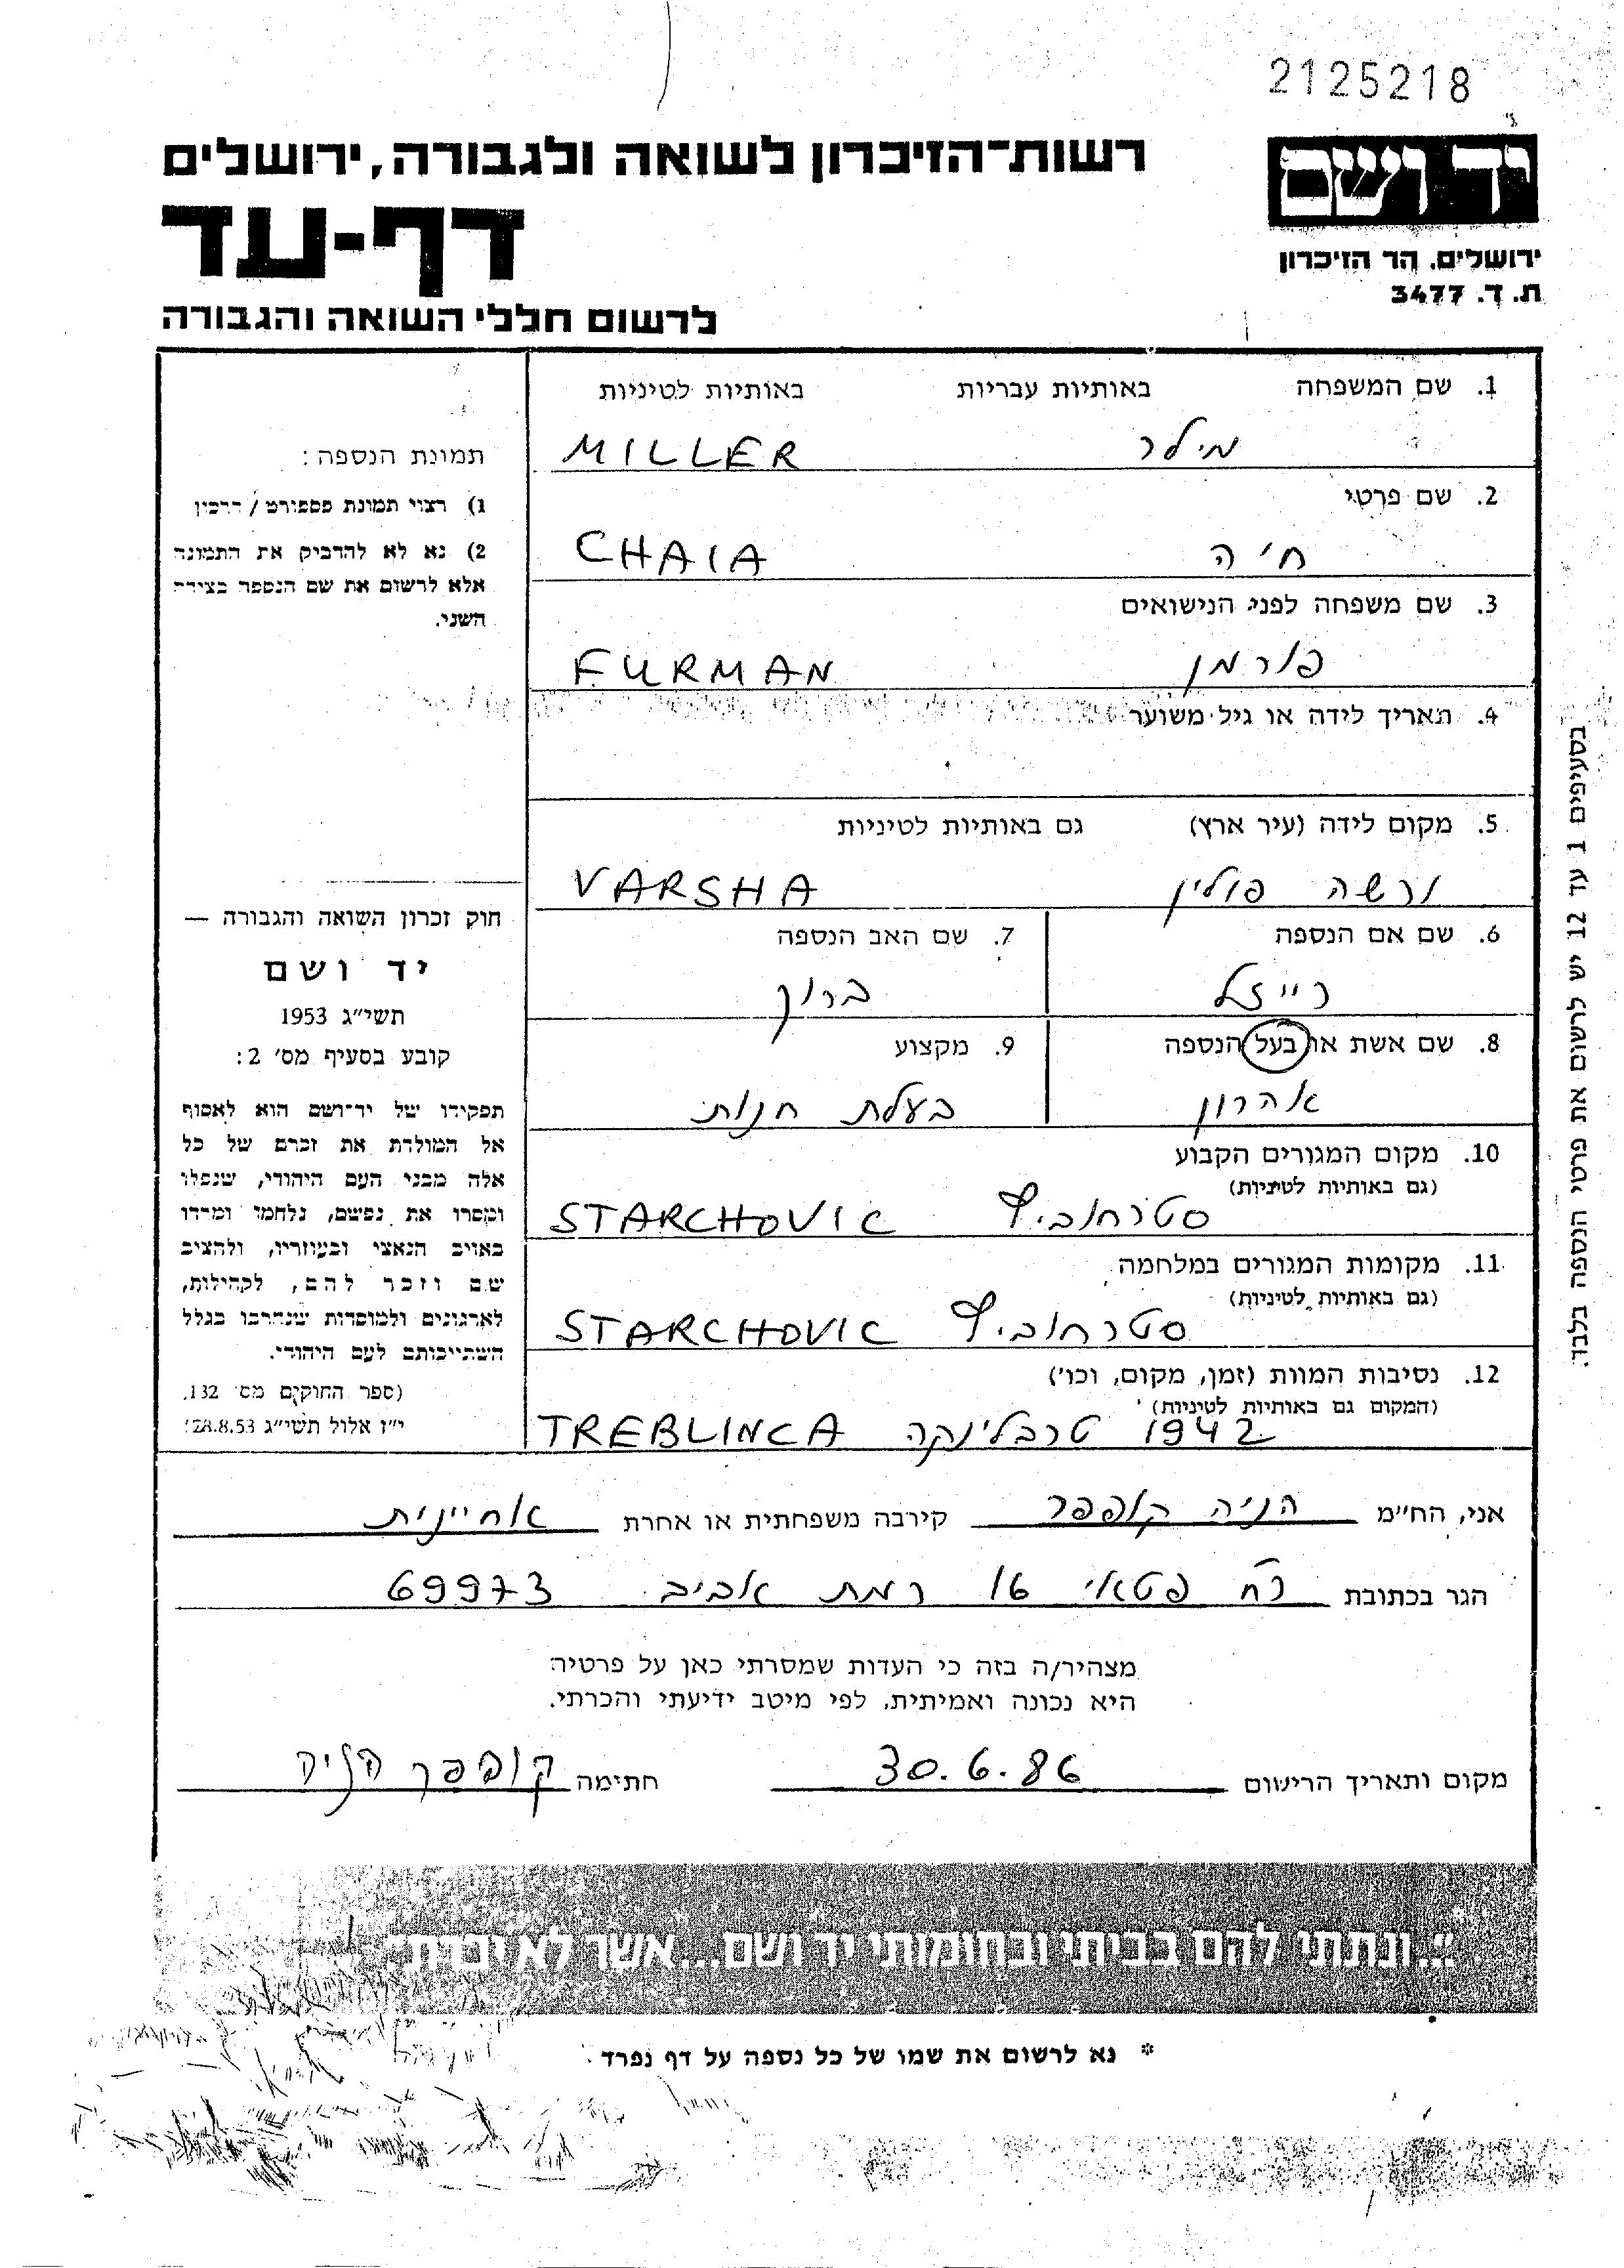 2125218
יד ושם
רשות־הזיכרון לשואה ולגבורה, ירושלים
דף-עד
ירושלים. הר הזיכרון
ת. ד. 3477
לרשום חללי השואה והגבורה
1. שם המשפחה באותיות עבריות באותיות לטיניות
מילר MILLER
2. שם פרטי
חיה CHAIA
3. שם משפחה לפני הנישואים
פורמן FURMAN
4. תאריך לידה או גיל משוער
5. מקום לידה (עיר ארץ) גם באותיות לטיניות
ורשה פולין VARSHA
6. שם אם הנספה 7. שם האב הנספה
רייזל ברוך
8. שם אשת או בעל הנספה 9. מקצוע
אהרון בעלת חנות
10. מקום המגורים הקבוע
(גם באותיות לטיניות)
סטרחוביץ STARCHOVIC
11. מקומות המגורים במלחמה
(גם באותיות לטיניות)
סטרחוביץ STARCHOVIC
12. נסיבות המוות (זמן, מקום, וכו')
(המקום גם באותיות לטיניות)
1942 טרבלינקה TREBLINCA
תמונת הנספה:
1) רצוי תמונת פספורט / דרכון
2) נא לא להדביק את התמונה
אלא לרשום את שם הנספה בצידה
השני.
חוק זכרון השואה והגבורה —
יד ושם
תשי"ג 1953
קובע בסעיף מס' 2:
תפקידו של יד־ושם הוא לאסוף
אל המולדת את זכרם של כל
אלה מבני העם היהודי, שנפלו
ומסרו את נפשם, נלחמו ומרדו
באויב הנאצי ובעוזריו, ולהציב
שם וזכר להם, לקהילות,
לארגונים ולמוסדות שנחרבו בגלל
השתייכותם לעם היהודי.
(ספר החוקים מס' 132,
י"ז אלול תשי"ג 28.8.53)
בסעיפים 1 עד 12 יש לרשום את פרטי הנספה בלבד.
אני, הח"מ הניה קופפר קירבה משפחתית או אחרת אחיינית
הגר בכתובת רח פטאי 16 רמת אביב 69973
מצהיר/ה בזה כי העדות שמסרתי כאן על פרטיה
היא נכונה ואמיתית, לפי מיטב ידיעתי והכרתי.
מקום ותאריך הרישום 30.6.86 חתימה קופפר הניה
"...ונתתי להם בביתי ובחומותי יד ושם...אשר לא יכרת"
* נא לרשום את שמו של כל נספה על דף נפרד